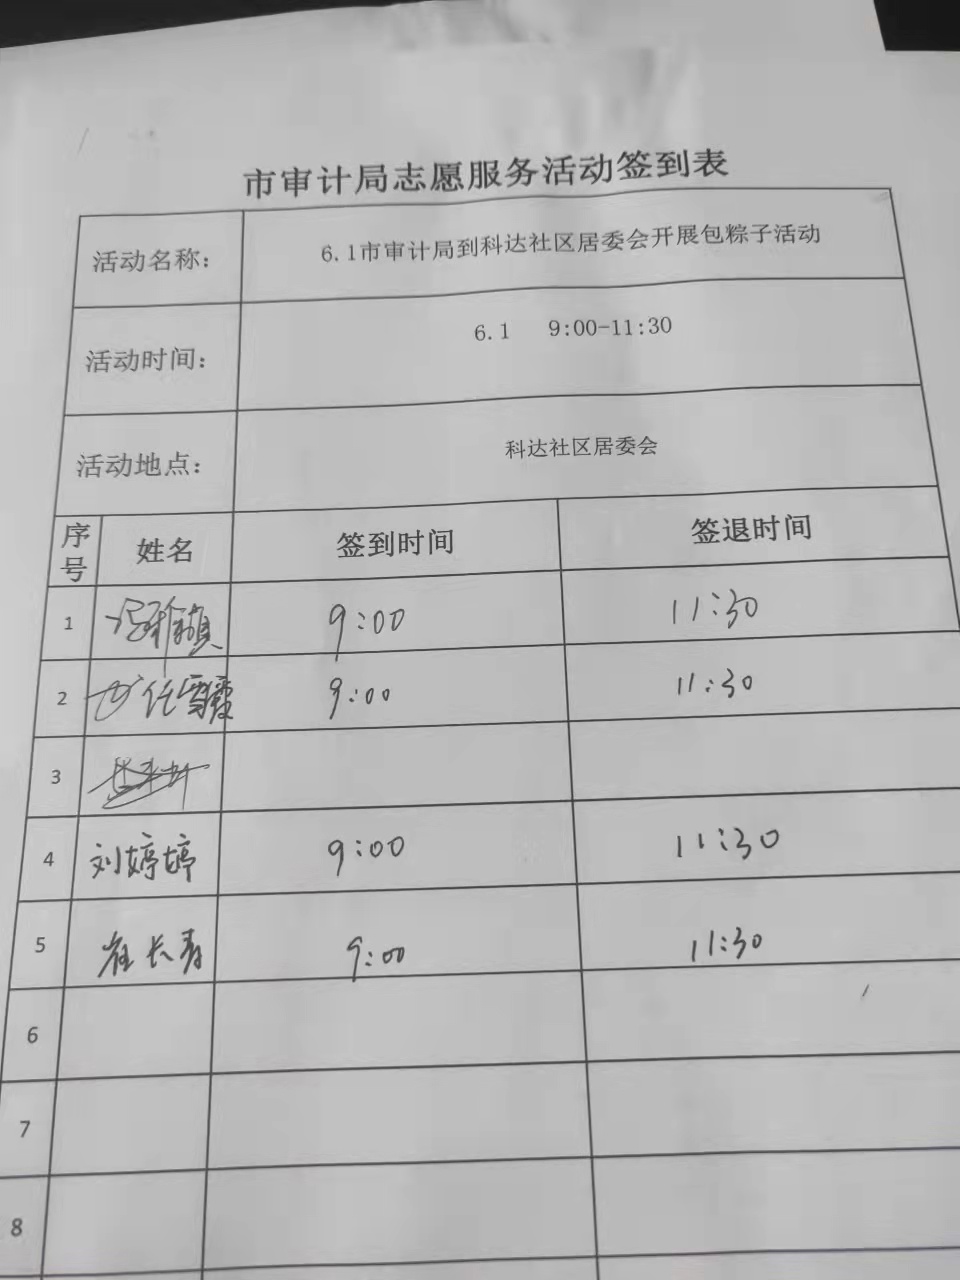 市审计局志愿服务活动签到表
活动名称： 6.1市审计局到科达社区居委会开展包粽子活动
活动时间： 6.1 9:00-11:30
活动地点： 科达社区居委会
序号 姓名 签到时间 签退时间
1 9:00 11:30
2 任雪霞 9:00 11:30
3
4 刘婷婷 9:00 11:30
5 崔长青 9:00 11:30
6
7
8